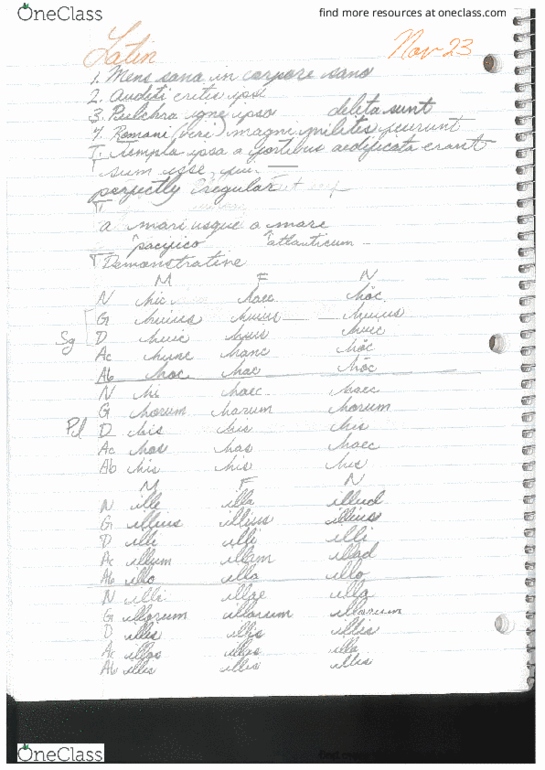 OneClass
find more resources at oneclass.com
Latin Nov 23
1. Mens sana in corpore sano
2. Auditi critis ipsi
3. Pulchra igne ipso deleta sunt
4. Romani (viri) magni milites fuerunt
5. Templa ipsa a fortibus aedificata erant
sum esse, fui
perfectly iregular
a mari usque a mare
pacifico atlanticum
Demonstrative
M F N
Sg
N hic haec hōc
G huius huius huius
D huic huic huic
Ac hunc hanc hōc
Ab hoc hac hōc
Pl
N hi haec haec
G horum harum horum
D his his his
Ac hos has haec
Ab his his his
M F N
N ille illa illud
G illius illius illius
D illi illi illi
Ac illum illam illud
Ab illo illa illo
N illi illae illa
G illorum illarum illorum
D illis illis illis
Ac illos illas illa
Ab illis illis illis
OneClass
find more resources at oneclass.com